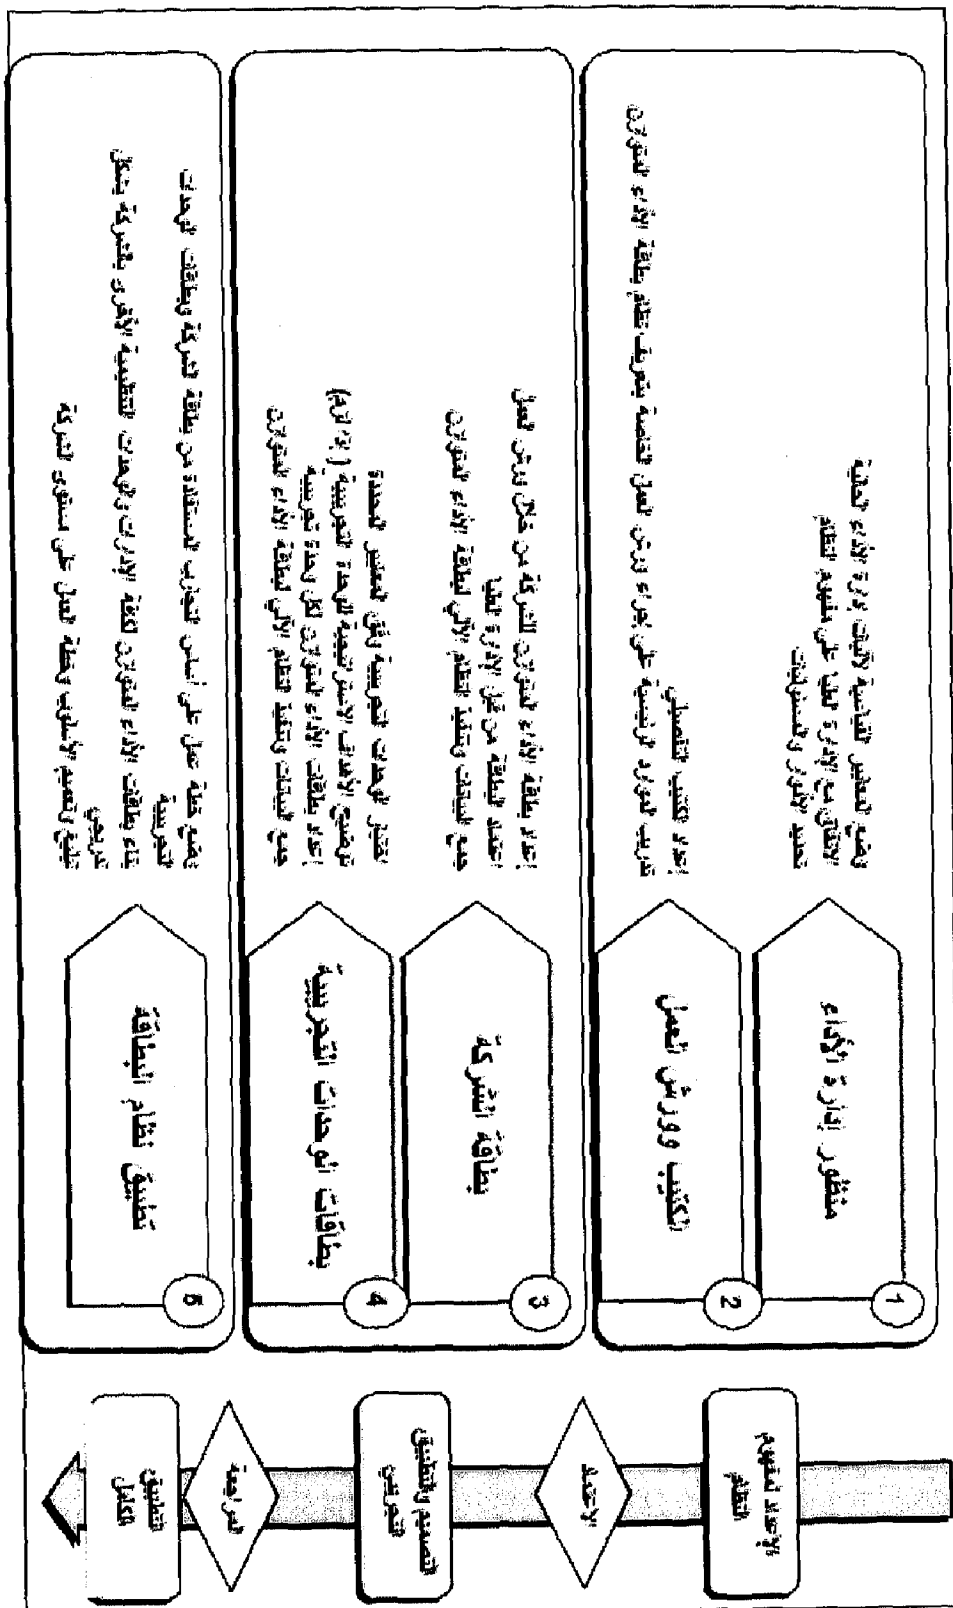 الإعداد لمفهوم
النظام
الاعتماد
التصميم والتطبيق
التجريبي
المراجعة
التطبيق
الكامل
1
منظور إدارة الأداء
وضع المعايير القياسية لآليات إدارة الأداء الحالية
الاتفاق مع الإدارة العليا على مفهوم النظام
تحديد الأدوار والمسئوليات
2
الكتيب وورش العمل
إعداد الكتيب التفصيلي
تدريب الموارد الرئيسية على إجراء ورش العمل الخاصة بتعريف نظام بطاقة الأداء المتوازن
3
بطاقة الشركة
إعداد بطاقة الأداء المتوازن للشركة من خلال ورش العمل
اعتماد البطاقة من قبل الإدارة العليا
جمع البيانات وتنفيذ النظام الآلي لبطاقة الأداء المتوازن
4
بطاقات الوحدات التجريبية
اختيار الوحدات التجريبية وفق المعايير المحددة
توضيح الأهداف الاستراتيجية للوحدة التجريبية (إذا لزم)
إعداد بطاقات الأداء المتوازن لكل وحدة تجريبية
جمع البيانات وتنفيذ النظام الآلي لبطاقة الأداء المتوازن
5
تطبيق نظام البطاقة
وضع خطة عمل على أساس التجارب المستفادة من بطاقة الشركة وبطاقات الوحدات
التجريبية
بناء بطاقات الأداء المتوازن لكافة الإدارات والوحدات التنظيمية الأخرى بالشركة بشكل
تدريجي
تبليغ وتعميم الأسلوب وخطة العمل على مستوى الشركة